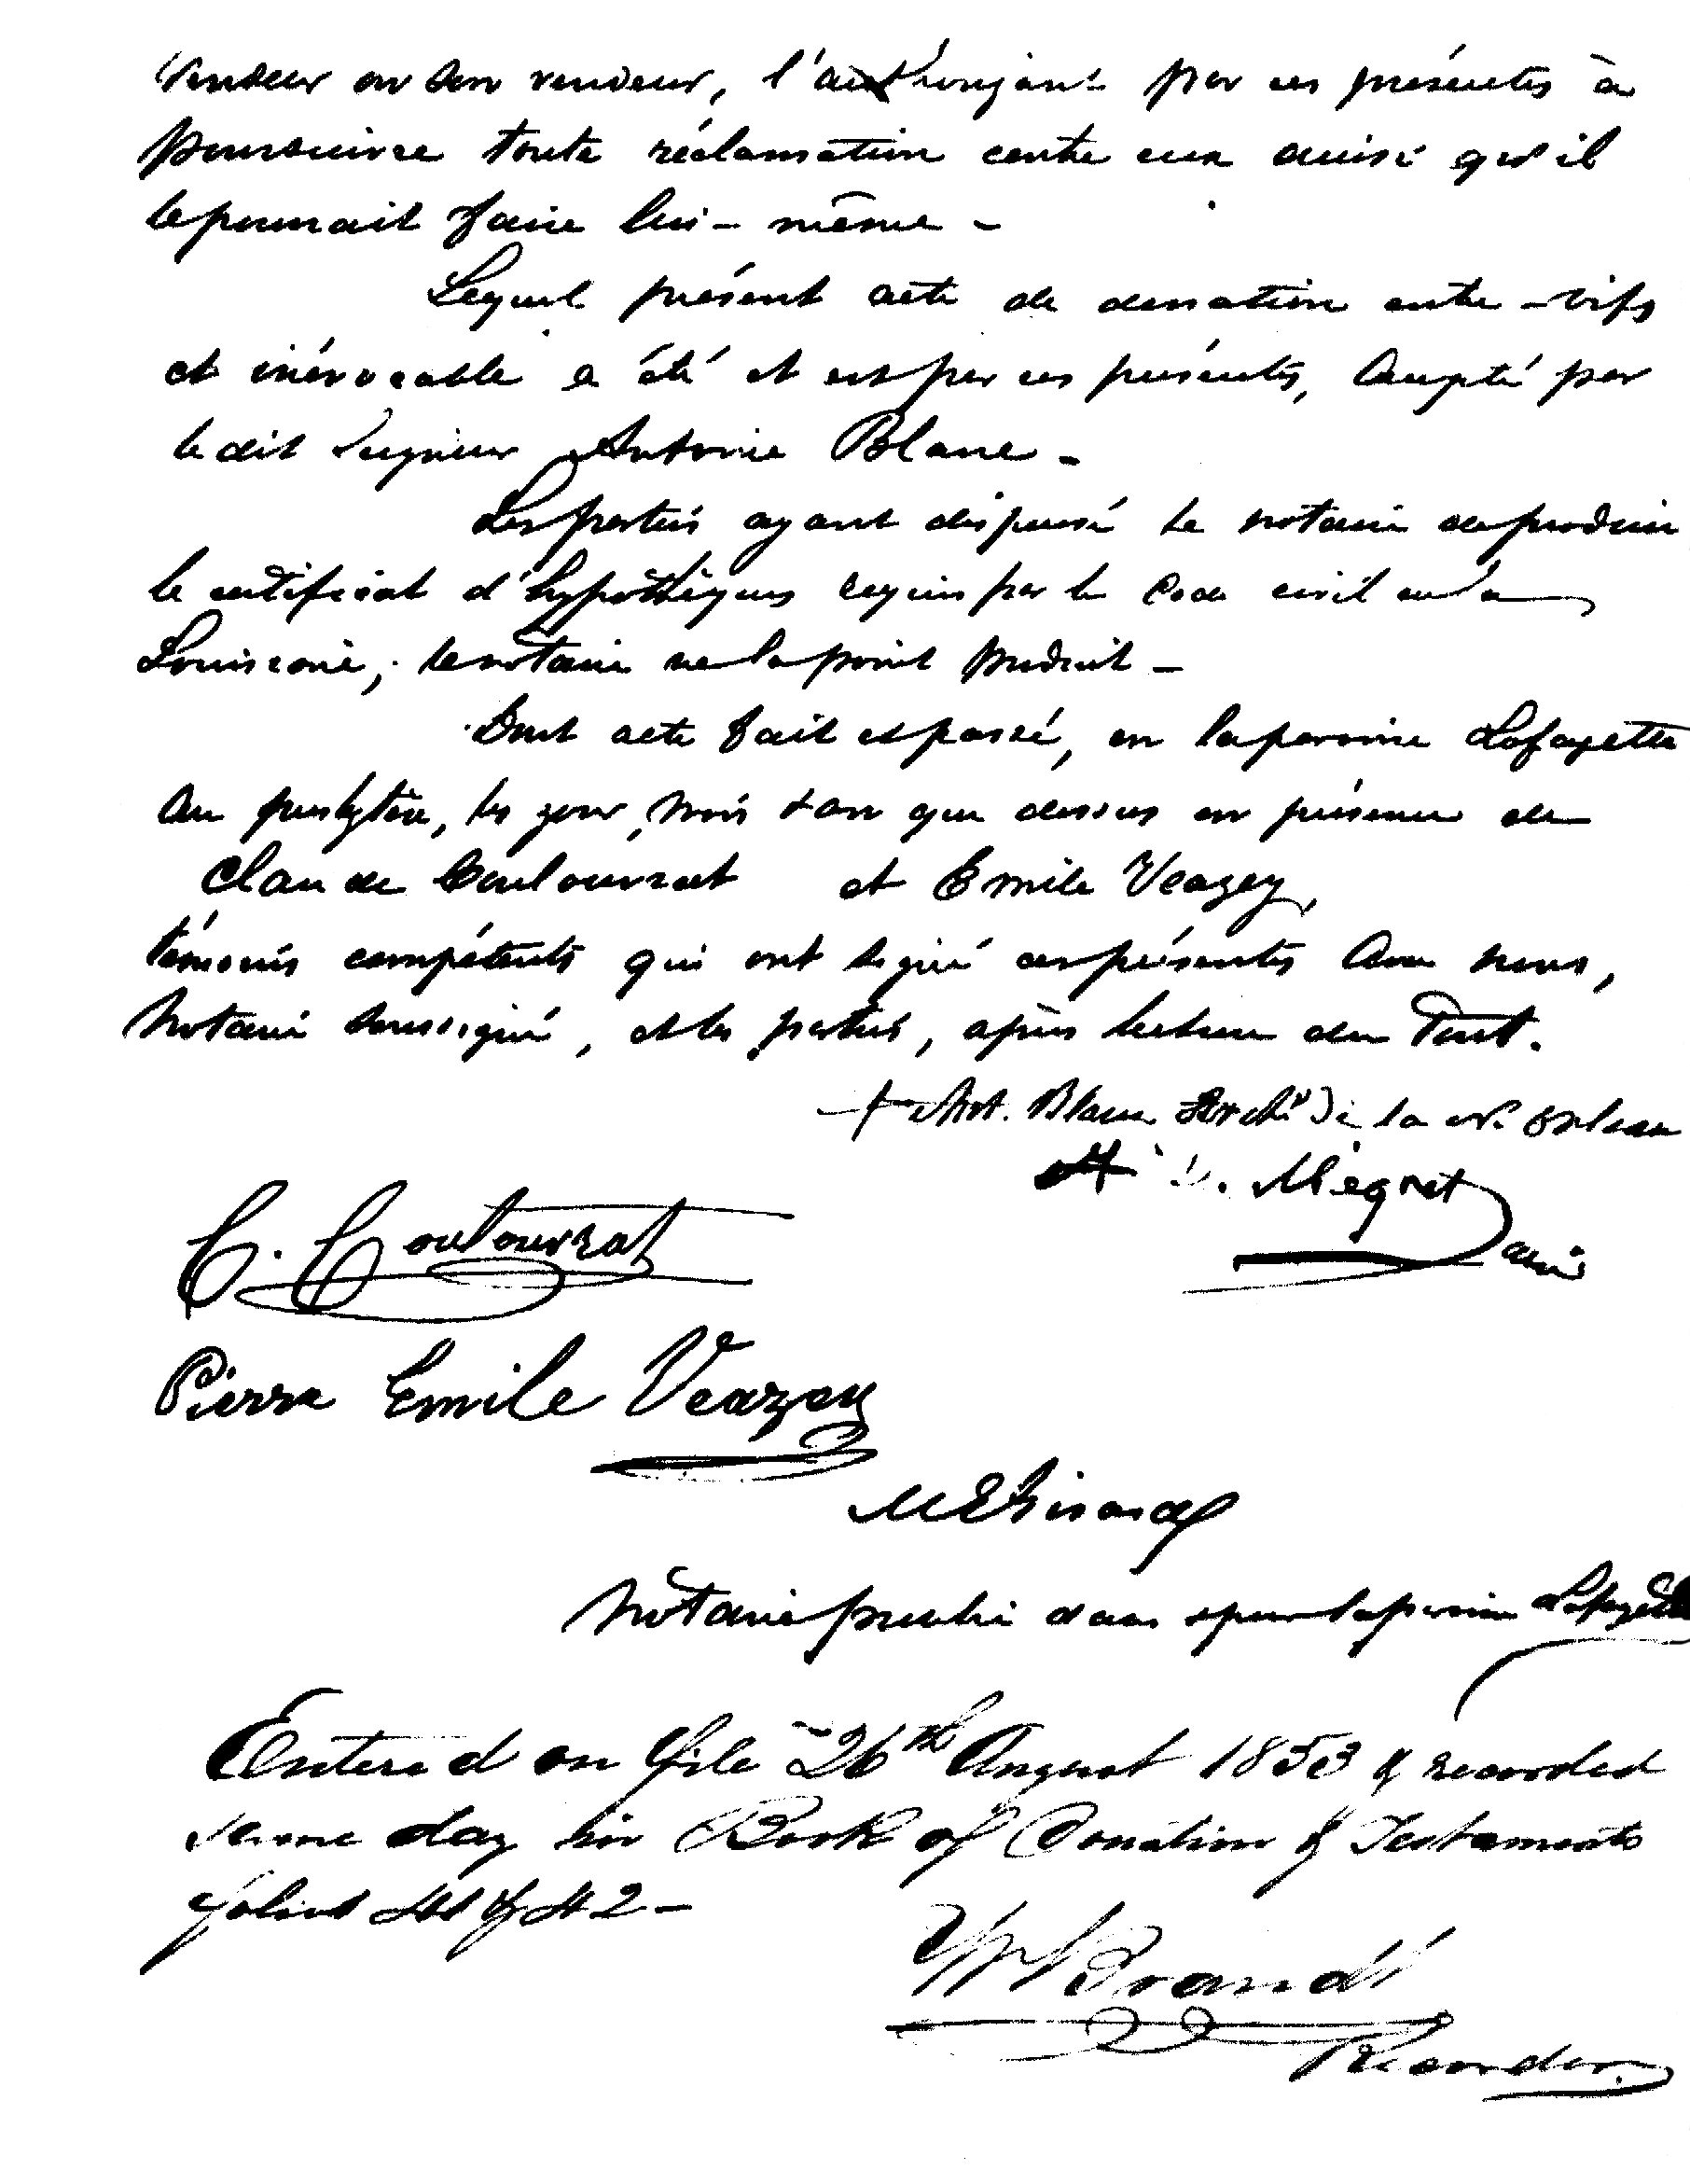 vendeur ou son vendeur, l'authorisant par ces présentes à
poursuivre toute réclamation contre eux ainsi qu'il
le pourrait faire lui-même -
Lequel présent acte de donation entre-vifs
et irrévocable a été et est par ces présentes, accepté par
le dit Seigneur Antoine Blanc -
Les parties ayant dispensé le notaire de produire
le certificat d'hypothèques requis par le Code civil de la
Louisiane, le notaire ne l'a point produit -
Dont acte fait et passé, en la paroisse Lafayette
au presbytère, les jour, mois & an que dessus en présence de
Claude Coulourat et Emile Veazey,
témoins compétents qui ont signé ces présentes avec nous,
Notaire soussigné, et les parties, après lecture du Tout.
+ Ant. Blanc Arché de la Nlle Orléans
Mégret
C. Coutouvrat
Pierre Emile Veazey
M E Girard
Notaire public dans & pour la paroisse Lafayette
Entered on file 26th August 1853 & recorded
same day in Book of Donation & Testaments
folios 41 & 42 -
W Brandt
Recorder